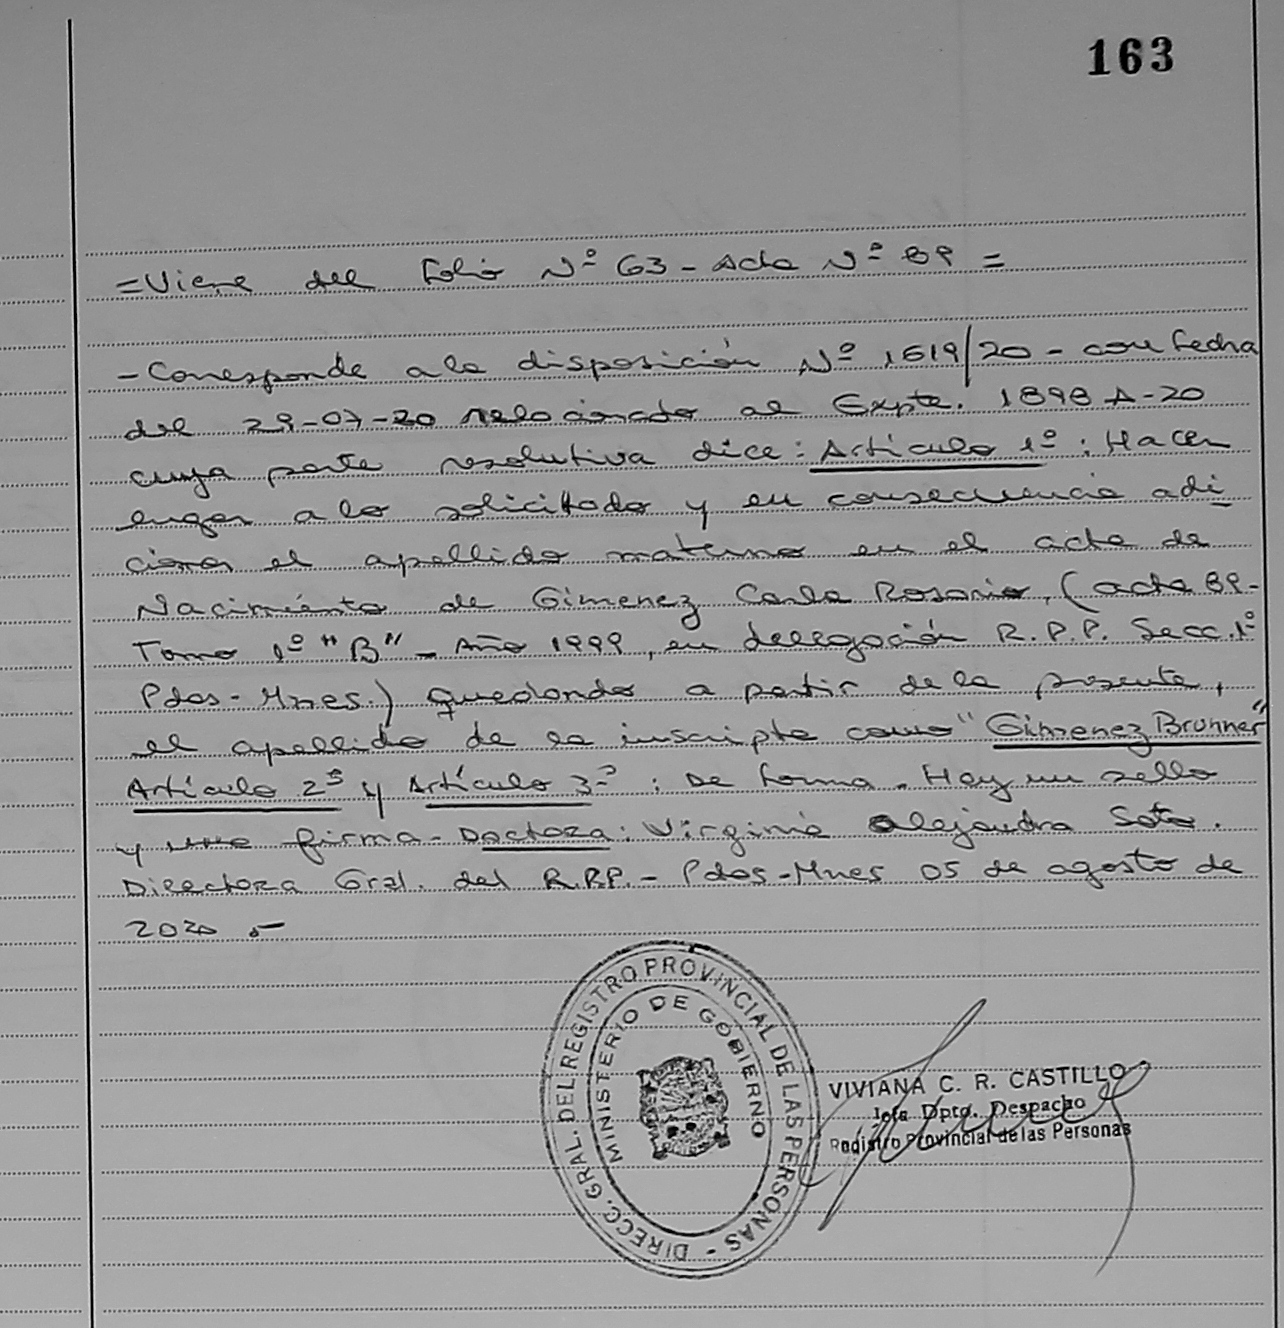 163
=Viene del Folio Nº 63 - Acta Nº 89 =
- Corresponde a la disposición Nº 1619/20 - con fecha
del 29-07-20 relacionado al Expte. 1898 A-20
cuya parte resolutiva dice: Artículo 1º: Hacer
lugar a lo solicitado y en consecuencia adi
cionar el apellido materno en el acta de
Nacimiento de Gimenez Carla Rosario, (acta 89-
Tomo 1º "B" - Año 1999, en delegación R.P.P. Secc. 1º
Pdas-Mnes.) quedando a partir de la presente,
el apellido de la inscripta como "Gimenez Brunner"
Artículo 2º y Artículo 3º: De forma. Hay un sello
y una firma - Doctora: Virginia Alejandra Soto.
Directora Gral. del R.P.P. - Pdas-Mnes 05 de agosto de
2020 -
DIRECC. GRAL. DEL REGISTRO PROVINCIAL DE LAS PERSONAS -
MINISTERIO DE GOBIERNO
VIVIANA C. R. CASTILLO
Jefa Dpto. Despacho
Registro Provincial de las Personas